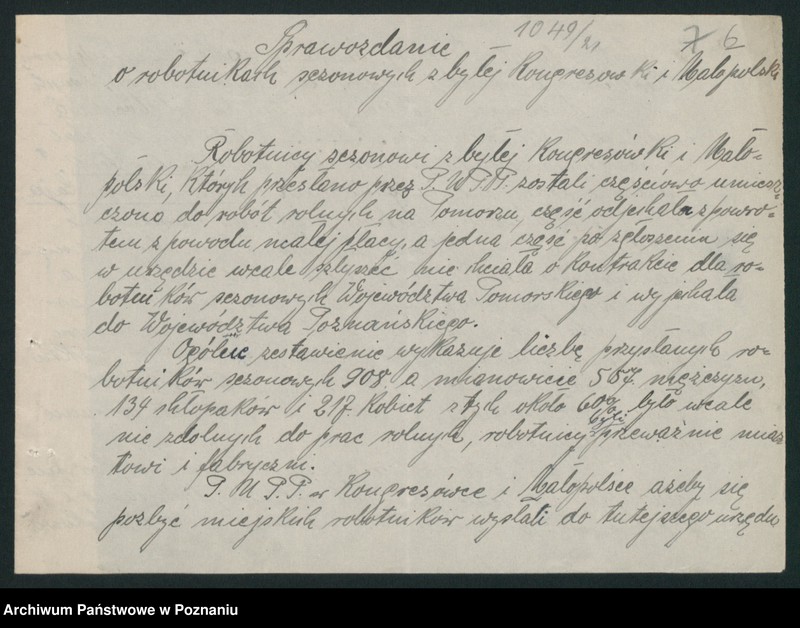 1049/21
7 6
Sprawozdanie
o robotnikach sezonowych z byłej Kongresówki i Małopolski
Robotnicy sezonowi z byłej Kongresówki i Mało-
polski, których przesłano przez P.U.P.P. zostali częściowo umiesz-
czono do robót rolnych na Pomorzu, część odjechała z powro-
tem z powodu małej płacy, a jedna część po zgłoszeniu się
w urzędzie wcale szłyszeć nie chciała o kontrakcie dla ro-
botników sezonowych Województwa Pomorskiego i wyjechała
do Województwa Poznańskiego.
Ogólne zestawienie wykazuje liczbę przysłanych ro-
botników sezonowych 908 a mianowicie 557 mężczyzn,
134 chłopaków i 217 kobiet z tych około 60% było wcale
nie zdolnych do prac rolnych, robotnicy byli przeważnie mias
towi i fabryczni.
P.U.P.P. w Kongresówce i Małopolsce ażeby się
pozbyć miejskich robotników wysłali do tutejszego urzędu
Archiwum Państwowe w Poznaniu